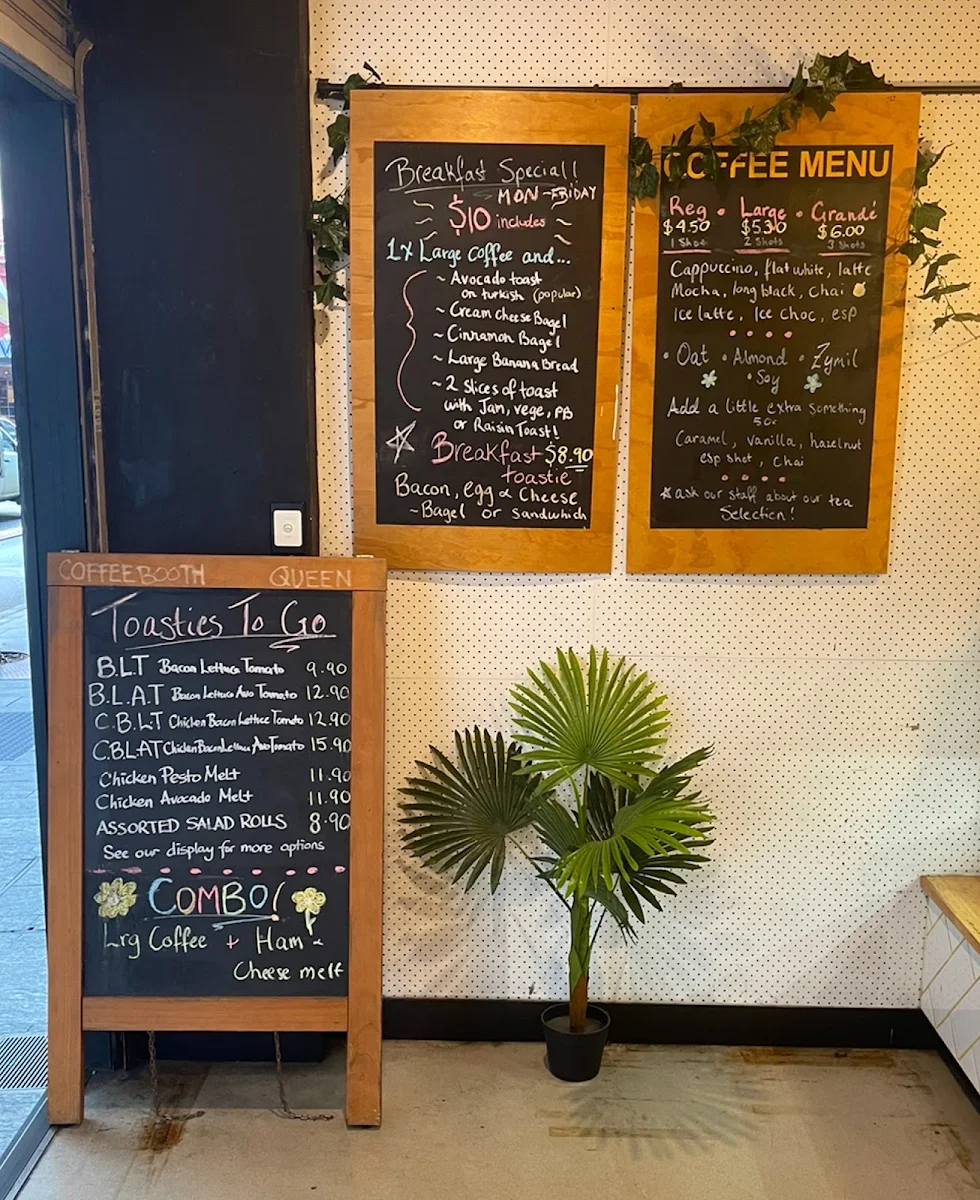 Breakfast Special!
MON - FRIDAY
$10 includes
1x Large coffee and...
~ Avocado toast
on turkish (popular)
~ Cream cheese Bagel
~ Cinnamon Bagel
~ Large Banana Bread
~ 2 slices of toast
with Jam, vege, PB
or Raisin Toast!
Breakfast $8.90
toastie
Bacon, egg & Cheese
~ Bagel or sandwhich
COFFEE MENU
Reg • Large • Grandé
$4.50 $5.30 $6.00
1 Shot 2 Shots 3 Shots
Cappuccino, flat white, latte
Mocha, long black, Chai
Ice latte, Ice choc, esp
• Oat • Almond • Zymil
• Soy
Add a little extra something
50c
Caramel, vanilla, hazelnut
esp shot, chai
ask our staff about our tea
Selection!
COFFEEBOOTH QUEEN
Toasties To Go
B.L.T Bacon Lettuce Tomato 9.90
B.L.A.T Bacon Lettuce Avo Tomato 12.90
C.B.L.T Chicken Bacon Lettice Tomato 12.90
C.B.L.A.T Chicken Bacon Lettuce Avo Tomato 15.90
Chicken Pesto Melt 11.90
Chicken Avocado Melt 11.90
ASSORTED SALAD ROLLS 8.90
See our display for more options
COMBO!
Lrg Coffee + Ham &
Cheese melt